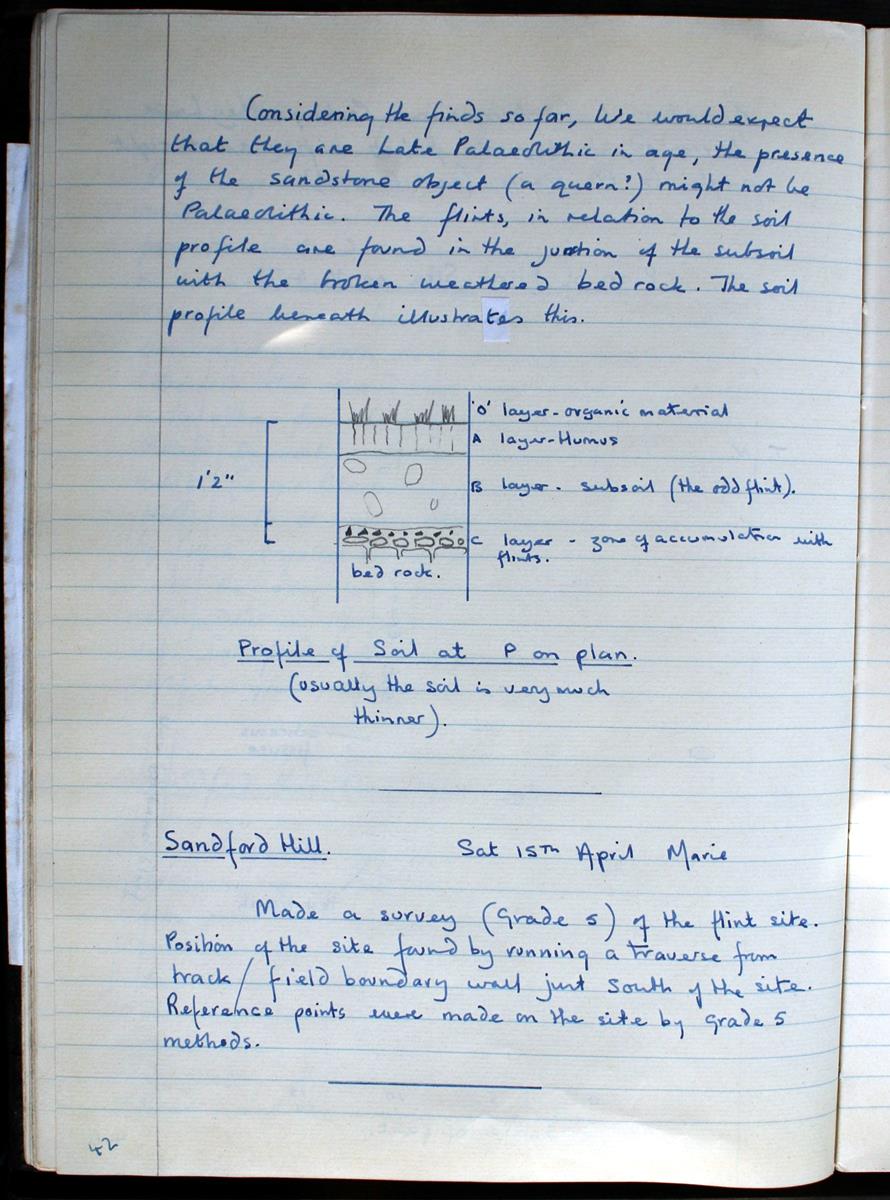 Considering the finds so far, We would expect
that they are Late Palaeolithic in age, the presence
of the sandstone object (a quern?) might not be
Palaeolithic. The flints, in relation to the soil
profile are found in the junction of the subsoil
with the broken weathered bed rock. The soil
profile beneath illustrates this.
'O' layer - organic material
A layer - Humus
1'2"
B layer - subsoil (the odd flint).
C layer - zone of accumulation with
flints.
bed rock.
Profile of Soil at P on plan.
(usually the soil is very much
thinner).
Sandford Hill. Sat 15TH April Marie
Made a survey (Grade 5) of the flint site.
Position of the site found by running a Traverse from
track / field boundary wall just South of the site.
Reference points were made on the site by Grade 5
methods.
42